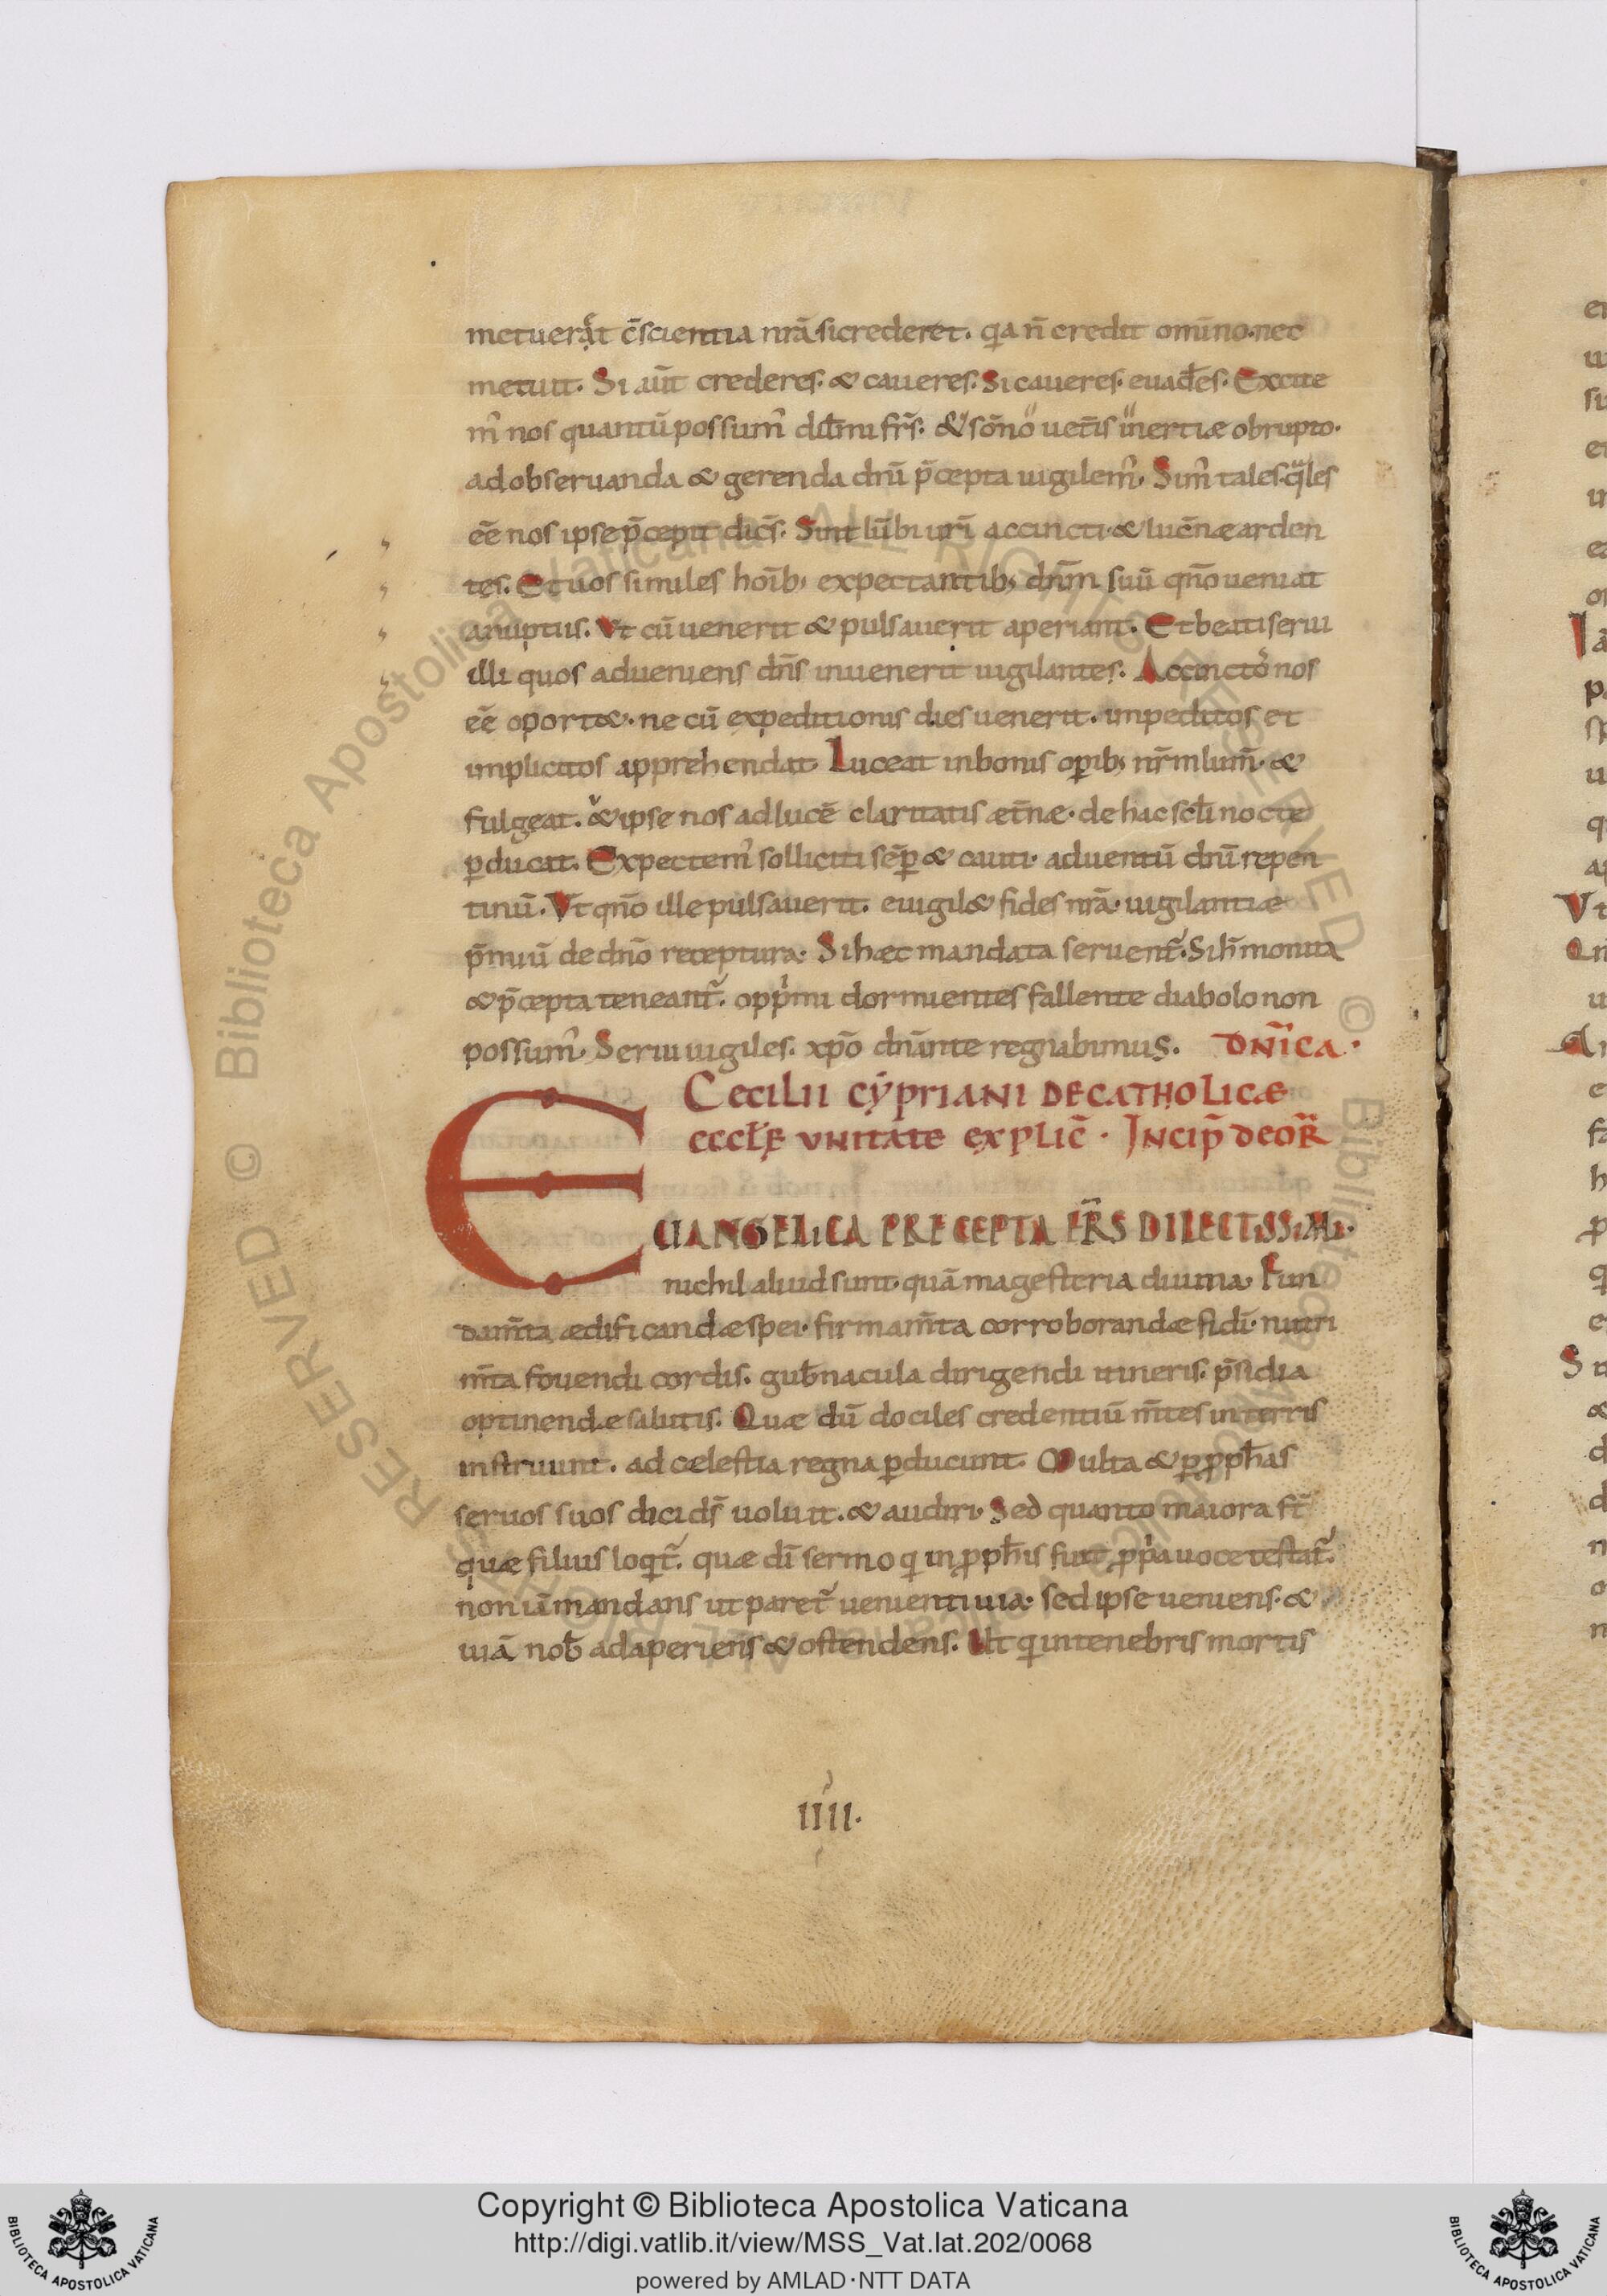 metuerat c̄scientia nr̄a sicrederet. q̣a n̄ credit omīno. nec
metuit. Si aūt crederet. & caueret. Si caueret. euad̄et. Excite
m᷒ nos quantū possum᷒ dil̄mi fr̄s. & sōno uet̄is inertiæ obrupto.
ad obseruanda & gerenda dn̄i p̄cepta uigilem᷒. Sim᷒ tales q̣les
eē nos ipse p̄cepit dic̄s. Sint lūbi ur̄i accincti. & luc̄næ arden
tes. Et uos similes hoīb; expectantib; dn̄m suū qn̄o ueniat
anuptiis. Vt cū uenerit & pulsauerit aperiant. Et beati serui
illi quos adueniens dn̄s inuenerit uigilantes. Accincto᷒ nos
eē oport&. ne cū expeditionis dies uenerit. impeditos et
implicitos apprehendat. Luceat inbonis oꝑib; nr̄m lum̄. &
fulgeat. & ipse nos ad lucē claritatis æt̄næ. de hac scl̄i nocte
ꝑducat. Expectem᷒ solliciti sēꝑ & cauti. aduentū dn̄i repen
tinū. Vt qn̄o ille pulsauerit. euigil& fides nr̄a. uigilantiæ
p̄miū de dn̄o receptura. Si hæc mandata seruent᷑. Si h̄ monita
& p̄cepta teneant᷑. opp̍mi dormientes fallente diabolo non
possum᷒. Serui uigiles. xp̄o dn̄ante regnabimus. DN̄ICA.
Cecilii cẏpriani de catholicæ
eccłę unitate explic̄. Incip̄ de or̄
E
UANGELICA PRECEPTA FR̄S DILECTISSIMI.
nichil aliud sunt. quā magesteria diuina. Fun
dam̄ta ædificandæ spei. firmam̄ta corroborandæ fidi. nutri
m̄ta fouendi cordis. gub̄nacula dirigendi itineris. p̄sidia
optinendæ salutis. Quæ dū dociles credentiū m̄tes interris
instruunt. ad celestia regna ꝑducunt. Multa & ꝑ ꝓph̄as
seruos suos dici ds̄ uoluit. & audiri. Sed quanto maiora st̄
quæ filius loqt᷑. quæ dī sermo q̣ in ꝓph̄is fuit ꝓp̍a uoce testat᷑.
non iā mandans ut paret᷑ uenienti uia. sed ipse ueniens. &
uiā nob̄ adaperiens & ostendens. Ut q̣ intenebris mortis
IIII.
Copyright © Biblioteca Apostolica Vaticana
http://digi.vatlib.it/view/MSS_Vat.lat.202/0068
powered by AMLAD·NTT DATA
BIBLIOTECA APOSTOLICA VATICANA
BIBLIOTECA APOSTOLICA VATICANA